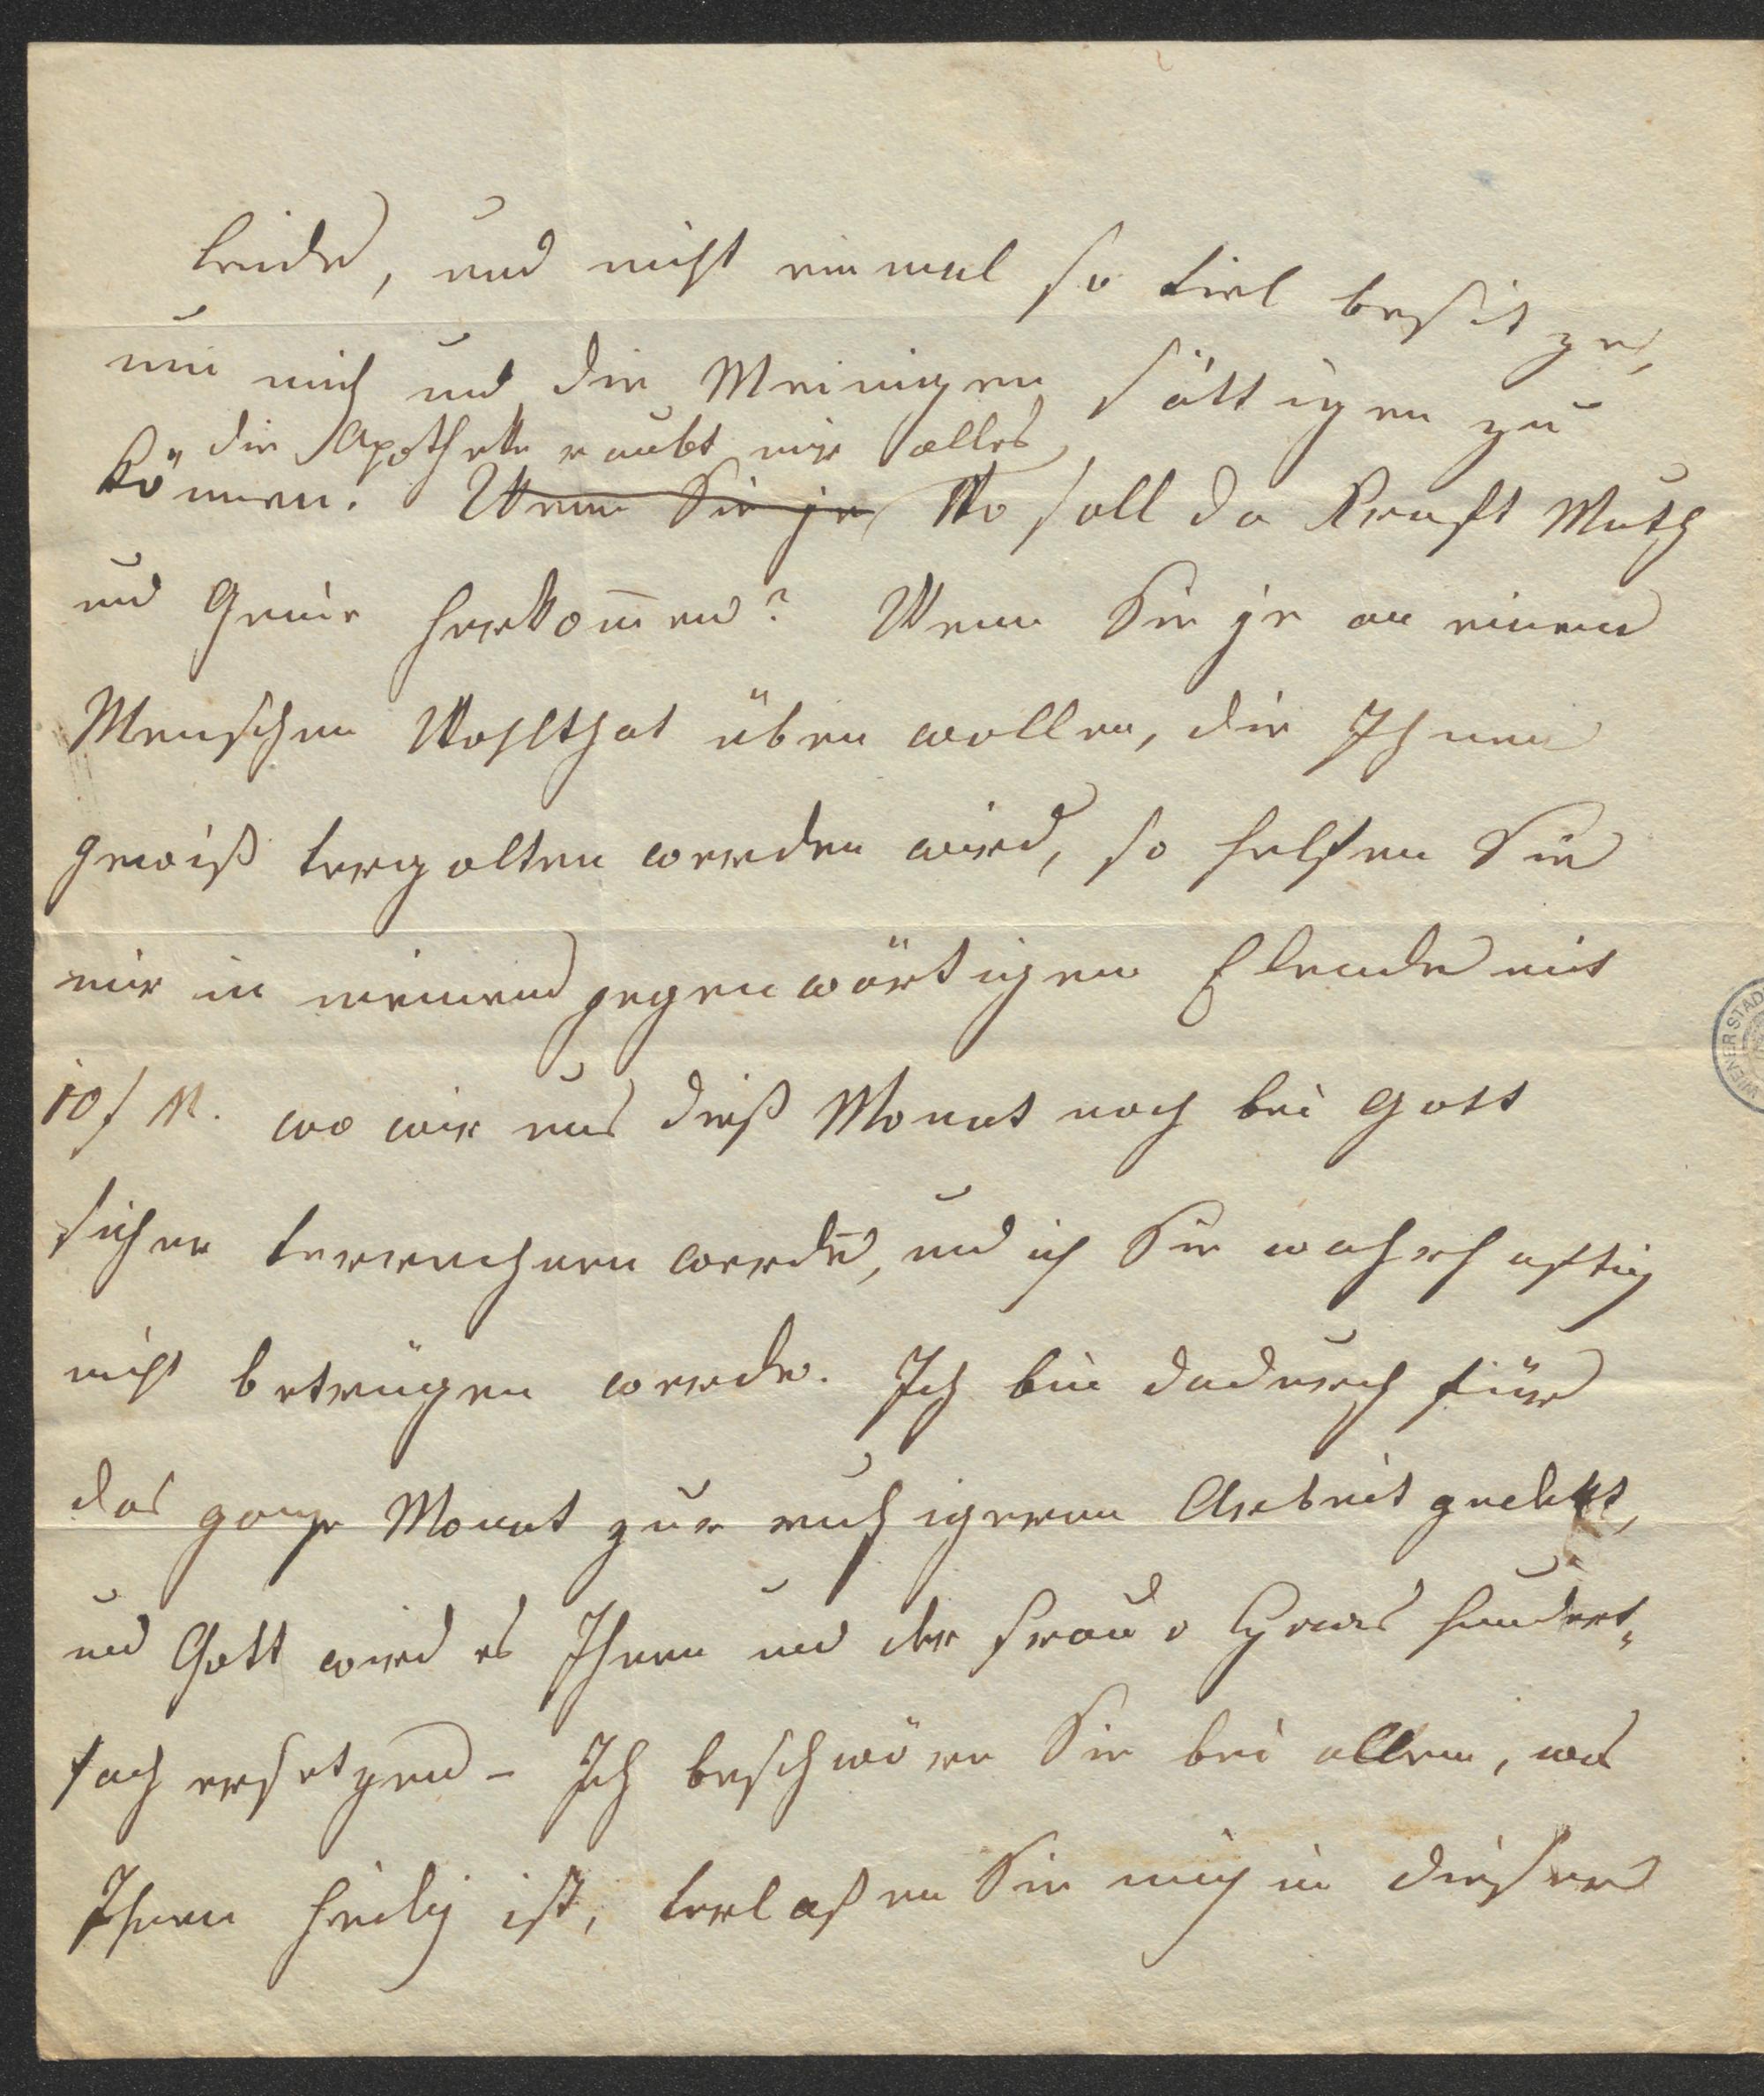 leide, und nicht einmal so viel besitze,
um mich und die Meinigen sättigen zu
die Apotheke raubt mir alles
können. Wenn Sie je Wo soll da Kraft Muth
und Genie herkom̅en? Wenn Sie je an einem
Menschen Wohlthat üben wollen, die Ihnen
gewiß vergolten werden wird, so helfen Sie
mir in meinem gegenwärtigen Elende mit
10 f M. wo wir uns dieß Monat noch bei Gott
sicher verrechnen werdē, und ich Sie wahrhaftig
nicht betrügen werde. Ich bin dadurch für
das ganze Monat zur ruhigeren Arbeit gedekt,
und Gott wird es Ihnen und der Frau v hundert„
fach ersetzen – Ich beschwöre Sie bei allem, was
Ihnen heilig ist, verlaßen Sie mich in dieser
WIENER STAD